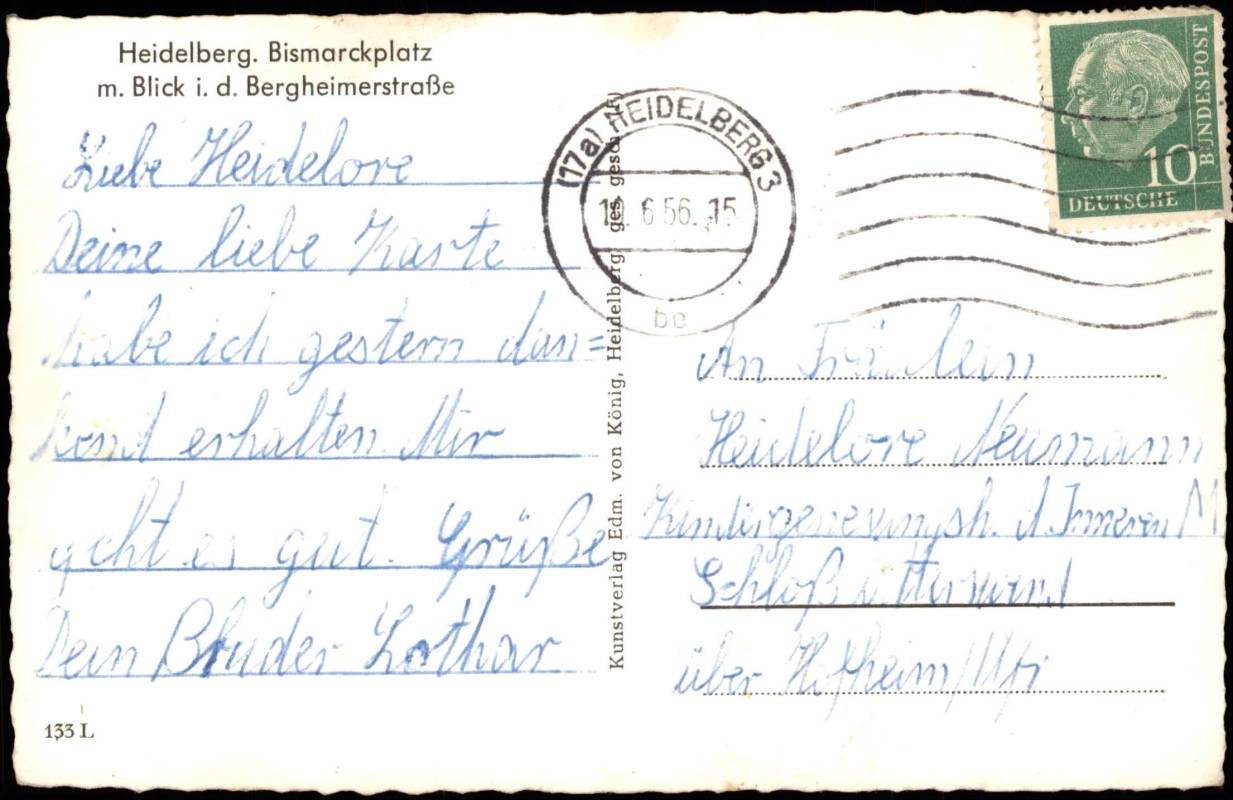 Heidelberg. Bismarckplatz
m. Blick i. d. Bergheimerstraße
Liebe Heidelore
Deine liebe Karte
habe ich gestern dan=
kend erhalten. Mir
geht es gut. Grüße
Dein Bruder Lothar
133 L
Kunstverlag Edm. von König, Heidelberg ges. gesch.
(17a) HEIDELBERG 3
6 56. 15
be
10
DEUTSCHE
BUNDESPOST
An Fräulein
Heidelore Neumann
Kindergenesungsh. d. Inneren M
Schloß
über Hofheim/Ufr